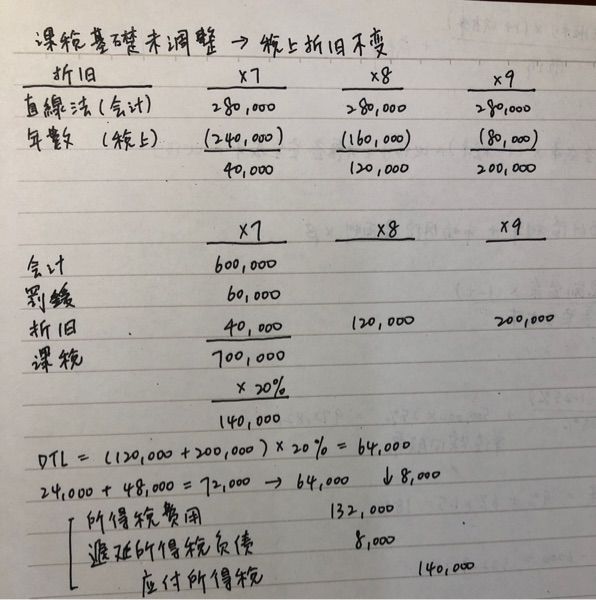 课稅基礎未调整 → 稅上折旧不变
折旧 x7 x8 x9
直線法(会计) 280,000 280,000 280,000
年數 (稅上) (240,000) (160,000) (80,000)
40,000 120,000 200,000
x7 x8 x9
会计 600,000
罰鍰 60,000
折旧 40,000 120,000 200,000
課稅 700,000
x 20%
140,000
DTL = (120,000 + 200,000) x 20% = 64,000
24,000 + 48,000 = 72,000 → 64,000 ↓8,000
所得稅費用 132,000
遞延所得稅负债 8,000
应付所得稅 140,000